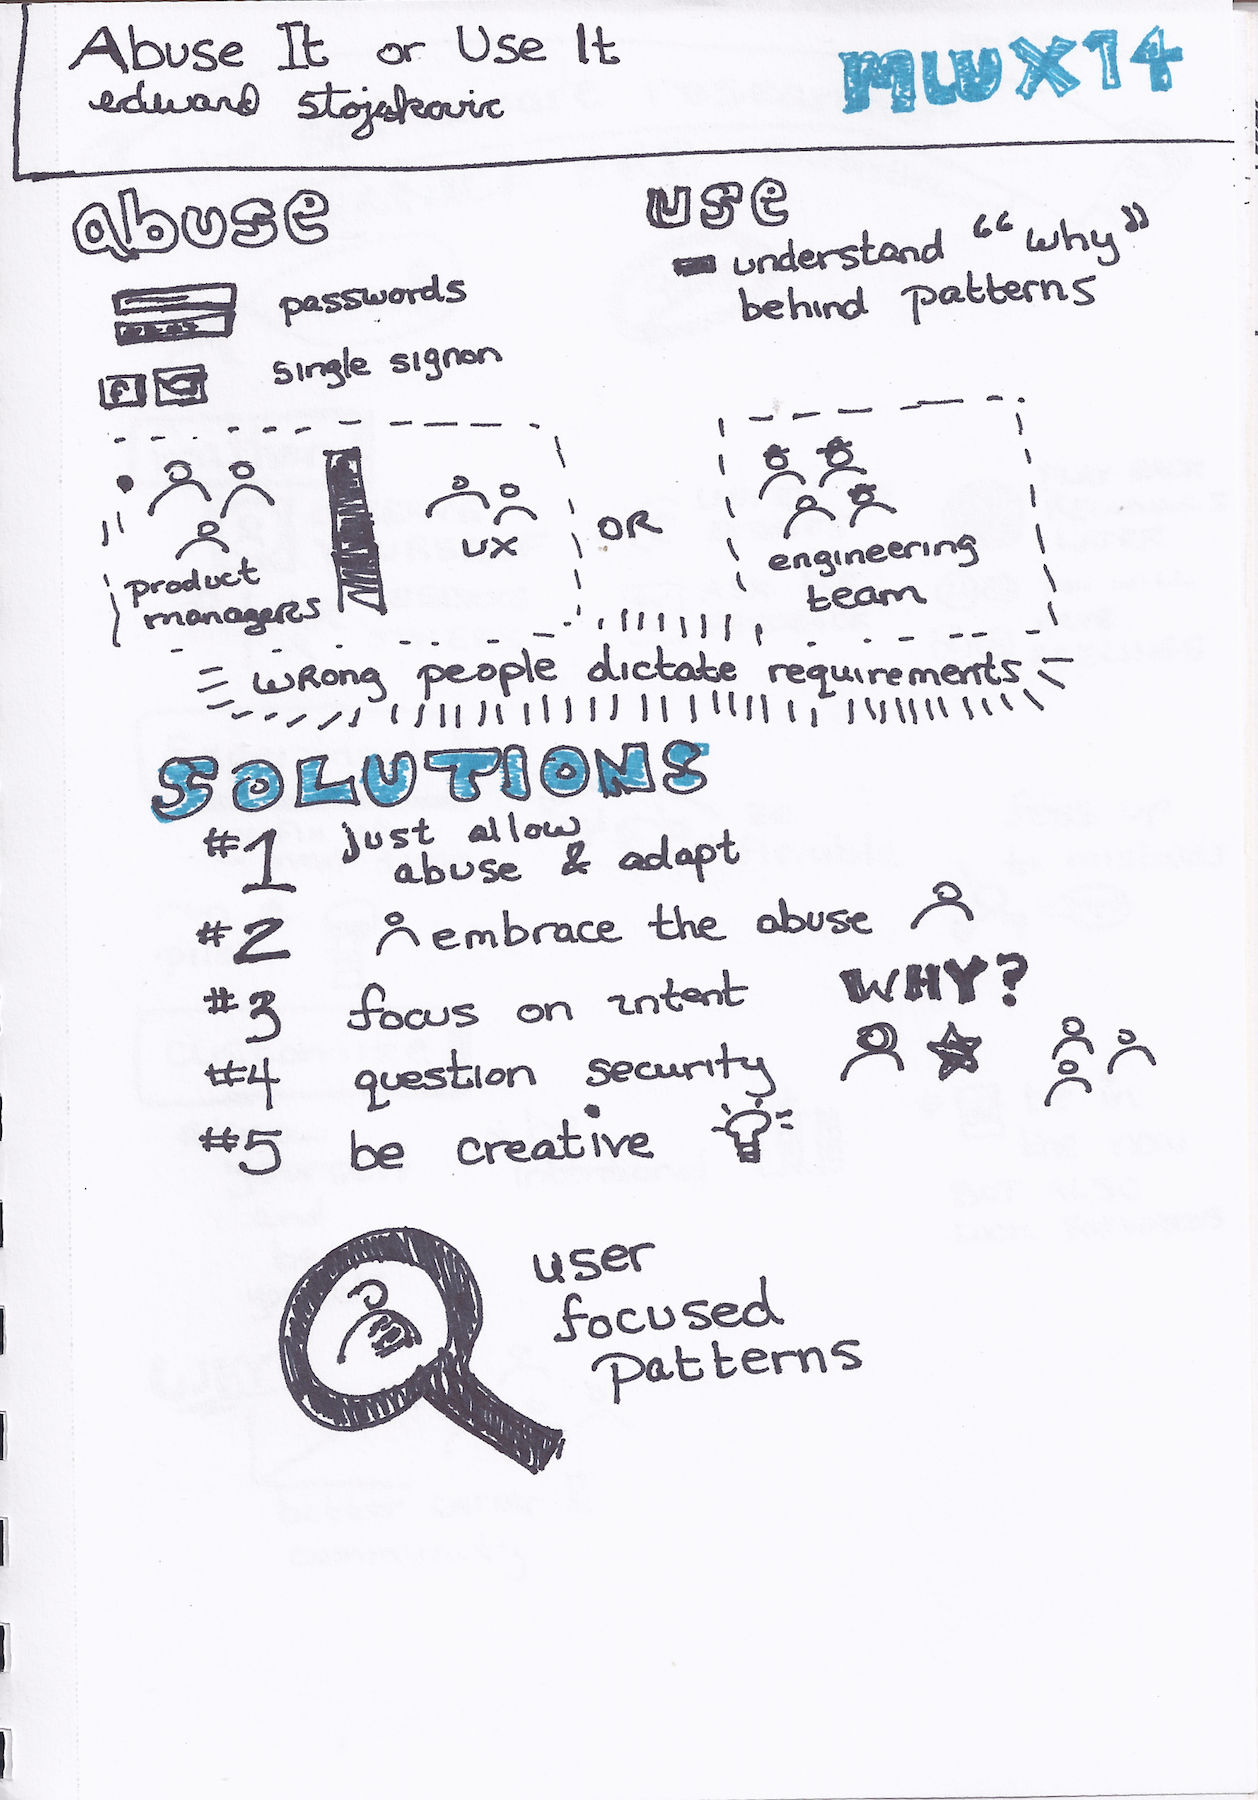 Abuse It or Use It
MWUX14
edward stojakovic
abuse
use
passwords
understand "why"
behind patterns
single signon
f
product
managers
UX
OR
engineering
team
wrong people dictate requirements
SOLUTIONS
#1 just allow
abuse & adapt
#2 embrace the abuse
#3 focus on intent WHY?
#4 question security
#5 be creative
user
focused
patterns